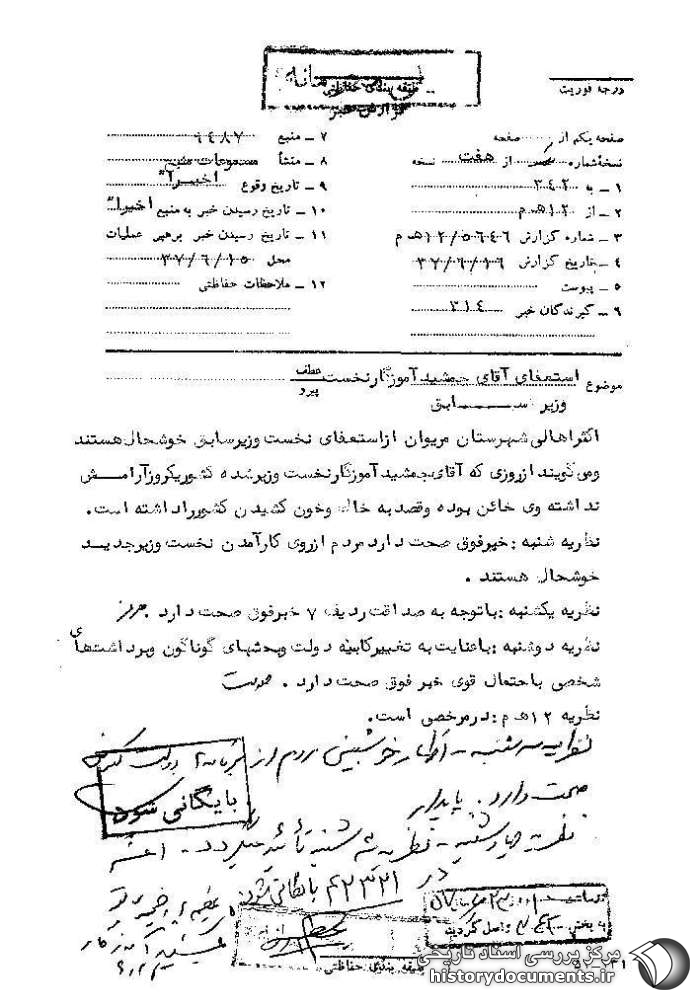 طبقه بندی حفاظتی
گزارش خبر
درجه فوریت
صفحه یکم از صفحه
نسخه شماره از هفت نسخه
۱ ـ به ۳۴۲
۲ ـ از ۱۲هـ م
۳ ـ شماره گزارش ۱۲/۵۶۴۶هـ م
۴ ـ تاریخ گزارش ۳۷/۶/۱۶
۵ ـ پیوست
۶ ـ گیرندگان خبر ۳۱۴
۷ ـ منبع ۹۴۸۷
۸ ـ منشأ مسموعات منبع
۹ ـ تاریخ وقوع اخیرا"
۱۰ ـ تاریخ رسیدن خبر به منبع اخیرا"
۱۱ ـ تاریخ رسیدن خبر برهبر عملیات
محل ۳۷/۶/۱۵
۱۲ ـ ملاحظات حفاظتی
موضوع استعفای آقای جمشید آموزگار نخست
عطف
پیرو
وزیر ســـابق
اکثراهالی شهرستان مریوان ازاستعفای نخست وزیرسابق خوشحال هستند
ومی گویند ازروزی که آقای جمشید آموزگارنخست وزیرشده کشوریکروزآرامـش
نداشته وی خائن بوده وقصد به خاک وخون کشیدن کشورراداشته است.
نظریه شنبه : خبرفوق صحت دارد مردم ازروی کارآمدن نخست وزیرجدیـد
خوشحال هستند .
نظریه یکشنبه : باتوجه به صداقت ردیف ۷ خبرفوق صحت دارد .
نظریه دوشنبه : باعنایت به تغییرکابینه دولت وبحثهای گوناگون وبرداشتهای
شخصی باحتمال قوی خبر فوق صحت دارد .
نظریه ۱۲هـ م : درمرخصی است.
نظریه سه شنبه ـ اظهار خوشبینی مردم از
صحت دارد. پایدار
بایگانی شود
نظریه چهارشنبه ـ نظریه سه شنبه تأیید میگردد ـ
در بایگانی شود
واصل گردید
طبقه بندی حفاظتی
مرکز بررسی اسناد تاریخی
historydocuments.ir